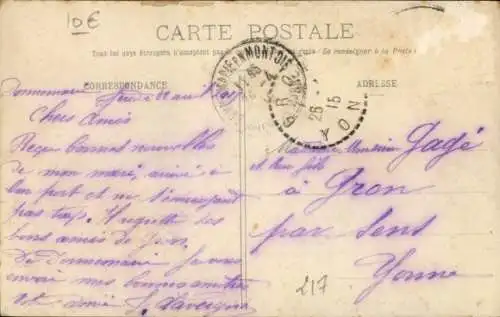 10€
CARTE POSTALE
Tous les pays étrangers n'acceptent pas
Se renseigner à la Poste
CORRESPONDANCE
ADRESSE
DONNEMARIE EN MONTOIS
26 - 4
15
YON
Donnemarie
Jeudi 22 avril
Chers Amis
Reçu bonnes nouvelles
de mon mari, arrivé à
bon port et ne s'ennuyant
pas trop. Huguette
bons amis de Gron.
De Donnemarie je vous
envoie mes bonnes amitiés
Monsieur Gagé
et Son fils
à Gron
par Sens
Yonne
217